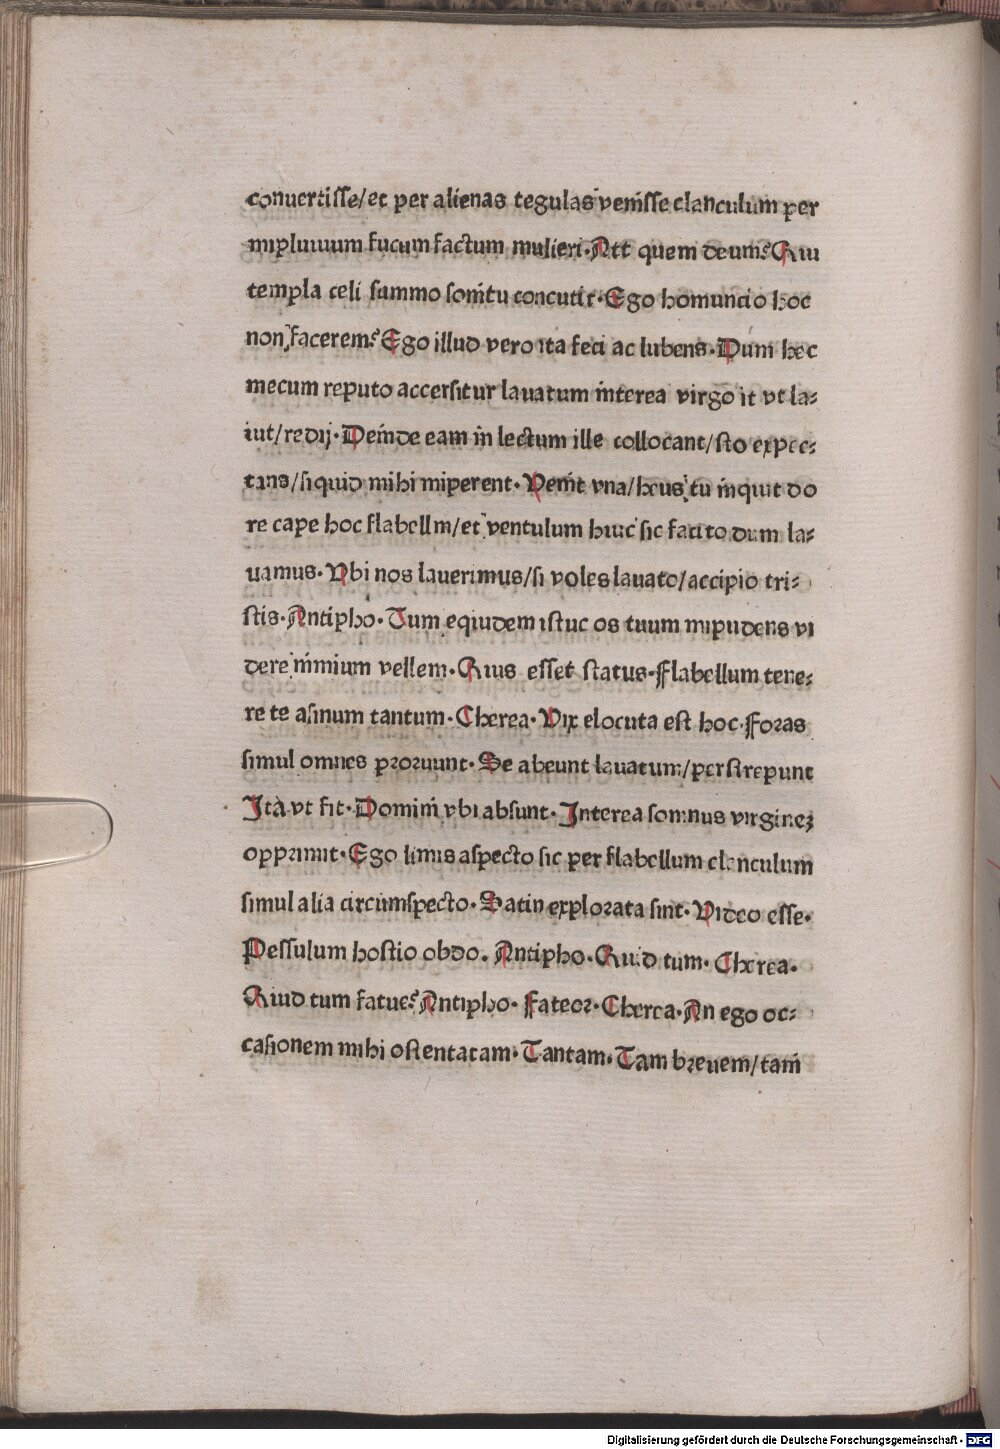 conuertisse/et per alienas tegulas venisse clanculum per
impluuium fucum factum mulieri. Att quem deum? Qui
templa celi summo sonitu concutit. Ego homuncio hoc
non facerem? Ego illud vero ita feci ac lubens. Dum hec
mecum reputo accersitur lauatum interea virgo it vt la⸗
uit/redij. Deinde eam in lectum ille collocant/sto expec⸗
tans/siquid mihi imperent. Venit vna/heus tu inquit do
re cape hoc flabellm/et ventulum huic sic facito dum la⸗
uamus. Vbi nos lauerimus/si voles lauato/accipio tri⸗
stis. Antipho. Tum equidem istuc os tuum impudens vi
dere nimium vellem. Qius esset status. Flabellum tene⸗
re te asinum tantum. Cherea. Vix elocuta est hoc. Foras
simul omnes proruunt. Se abeunt lauatum/perstrepunt
Ita vt fit. Domini vbi absunt. Interea somnus virginez
opprimit. Ego limis aspecto sic per flabellum clanculum
simul alia circumspecto. Satin explorata sint. Video esse.
Pessulum hostio obdo. Antipho. Quid tum. Cherea.
Qiud tum fatue? Antipho. Fateor. Cherea. An ego oc⸗
casionem mihi ostentatam. Tantam. Tam breuem/tam
Digitalisierung gefördert durch die Deutsche Forschungsgemeinschaft - DFG